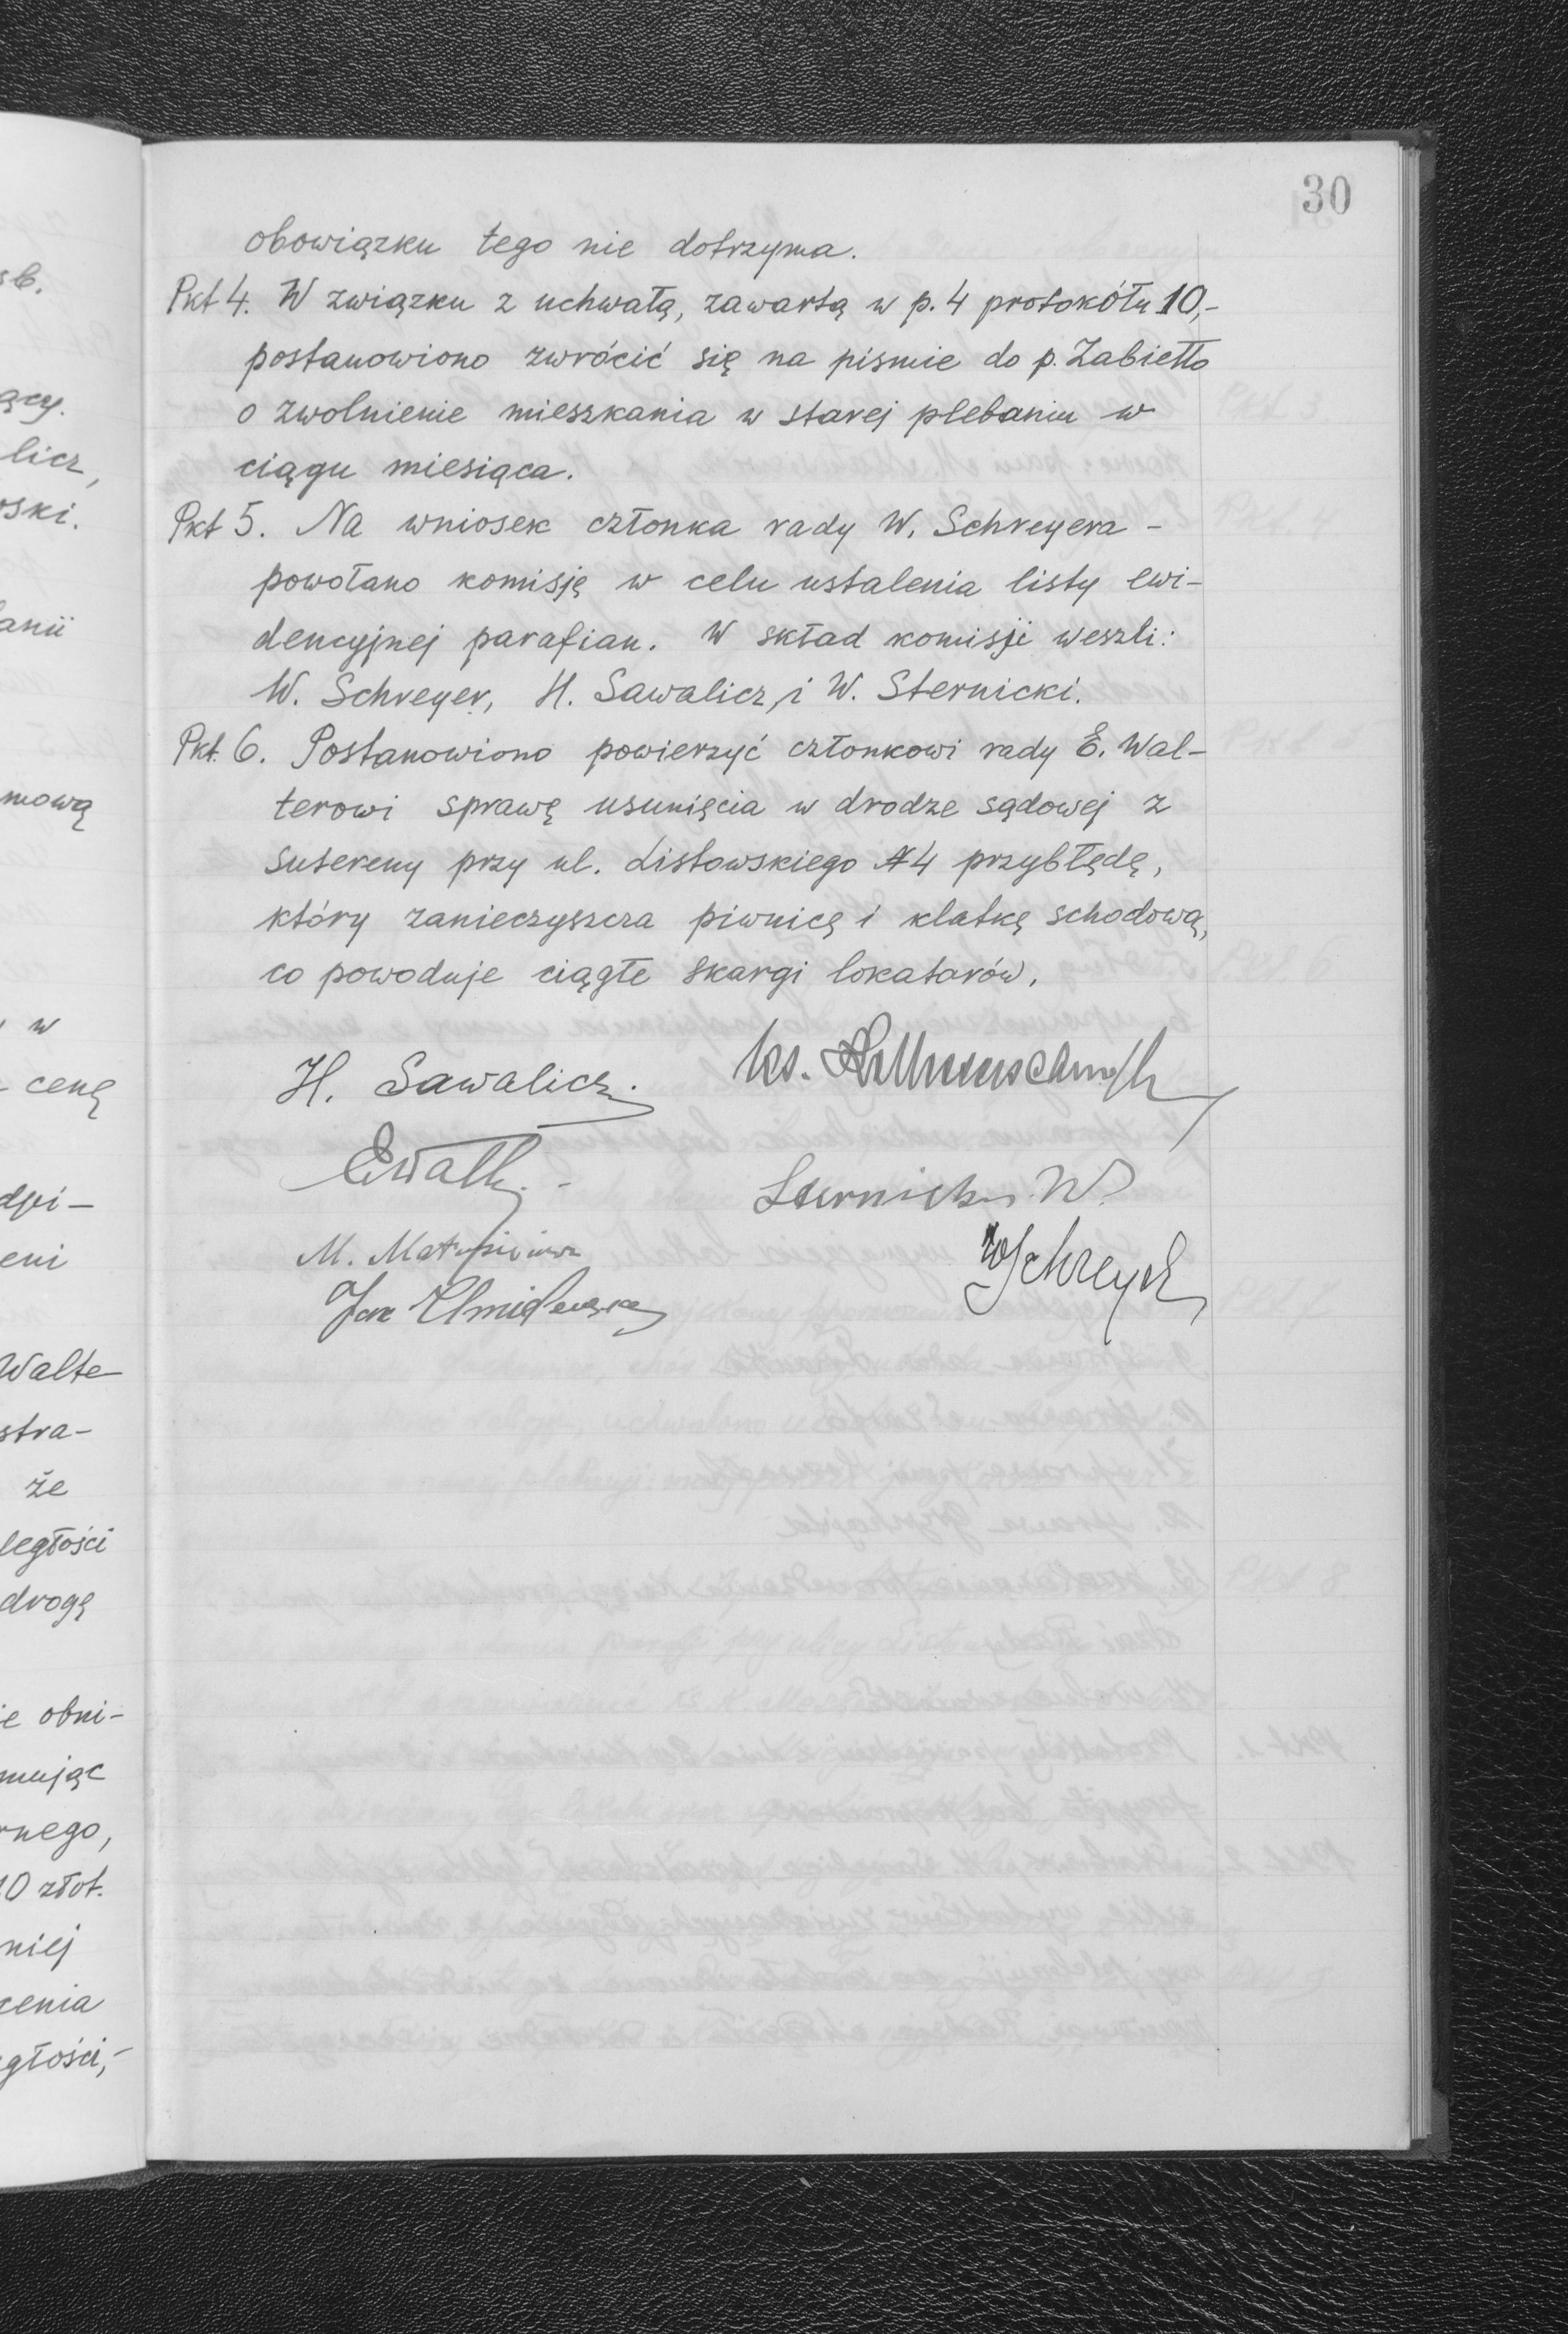 30
obowiązku tego nie dotrzyma.
Pkt 4. W związku z uchwałą, zawartą w p. 4 protokółu 10,-
postanowiono zwrócić się na piśmie do p. Zabiełło
o zwolnienie mieszkania w starej plebaniu w
ciągu miesiąca.
Pkt 5. Na wniosek członka rady W. Schreyera -
powołano komisję w celu ustalenia listy ewi-
dencyjnej parafian. W skład komisji weszli:
W. Schreyer, H. Sawalicz, i W. Sternicki.
Pkt. 6. Postanowiono powierzyć członkowi rady E. Wal-
terowi sprawę usunięcia w drodze sądowej z
sutereny przy ul. Listowskiego N4 przybłędę,
który zanieczyszcza piwnicę i klatkę schodową,
co powoduje ciągłe skargi lokatorów.
H. Sawalicz.
ks.
EWalt
Sternicki W.
M.
WSchreyer
Jan
sb.
ący.
licz,
oski.
anii
mową
w
cenę
dpi-
eni
Walte-
stra-
że
ległości
drogę
ie obni-
mując
rnego,
10 złot.
niej
zenia
głości,-